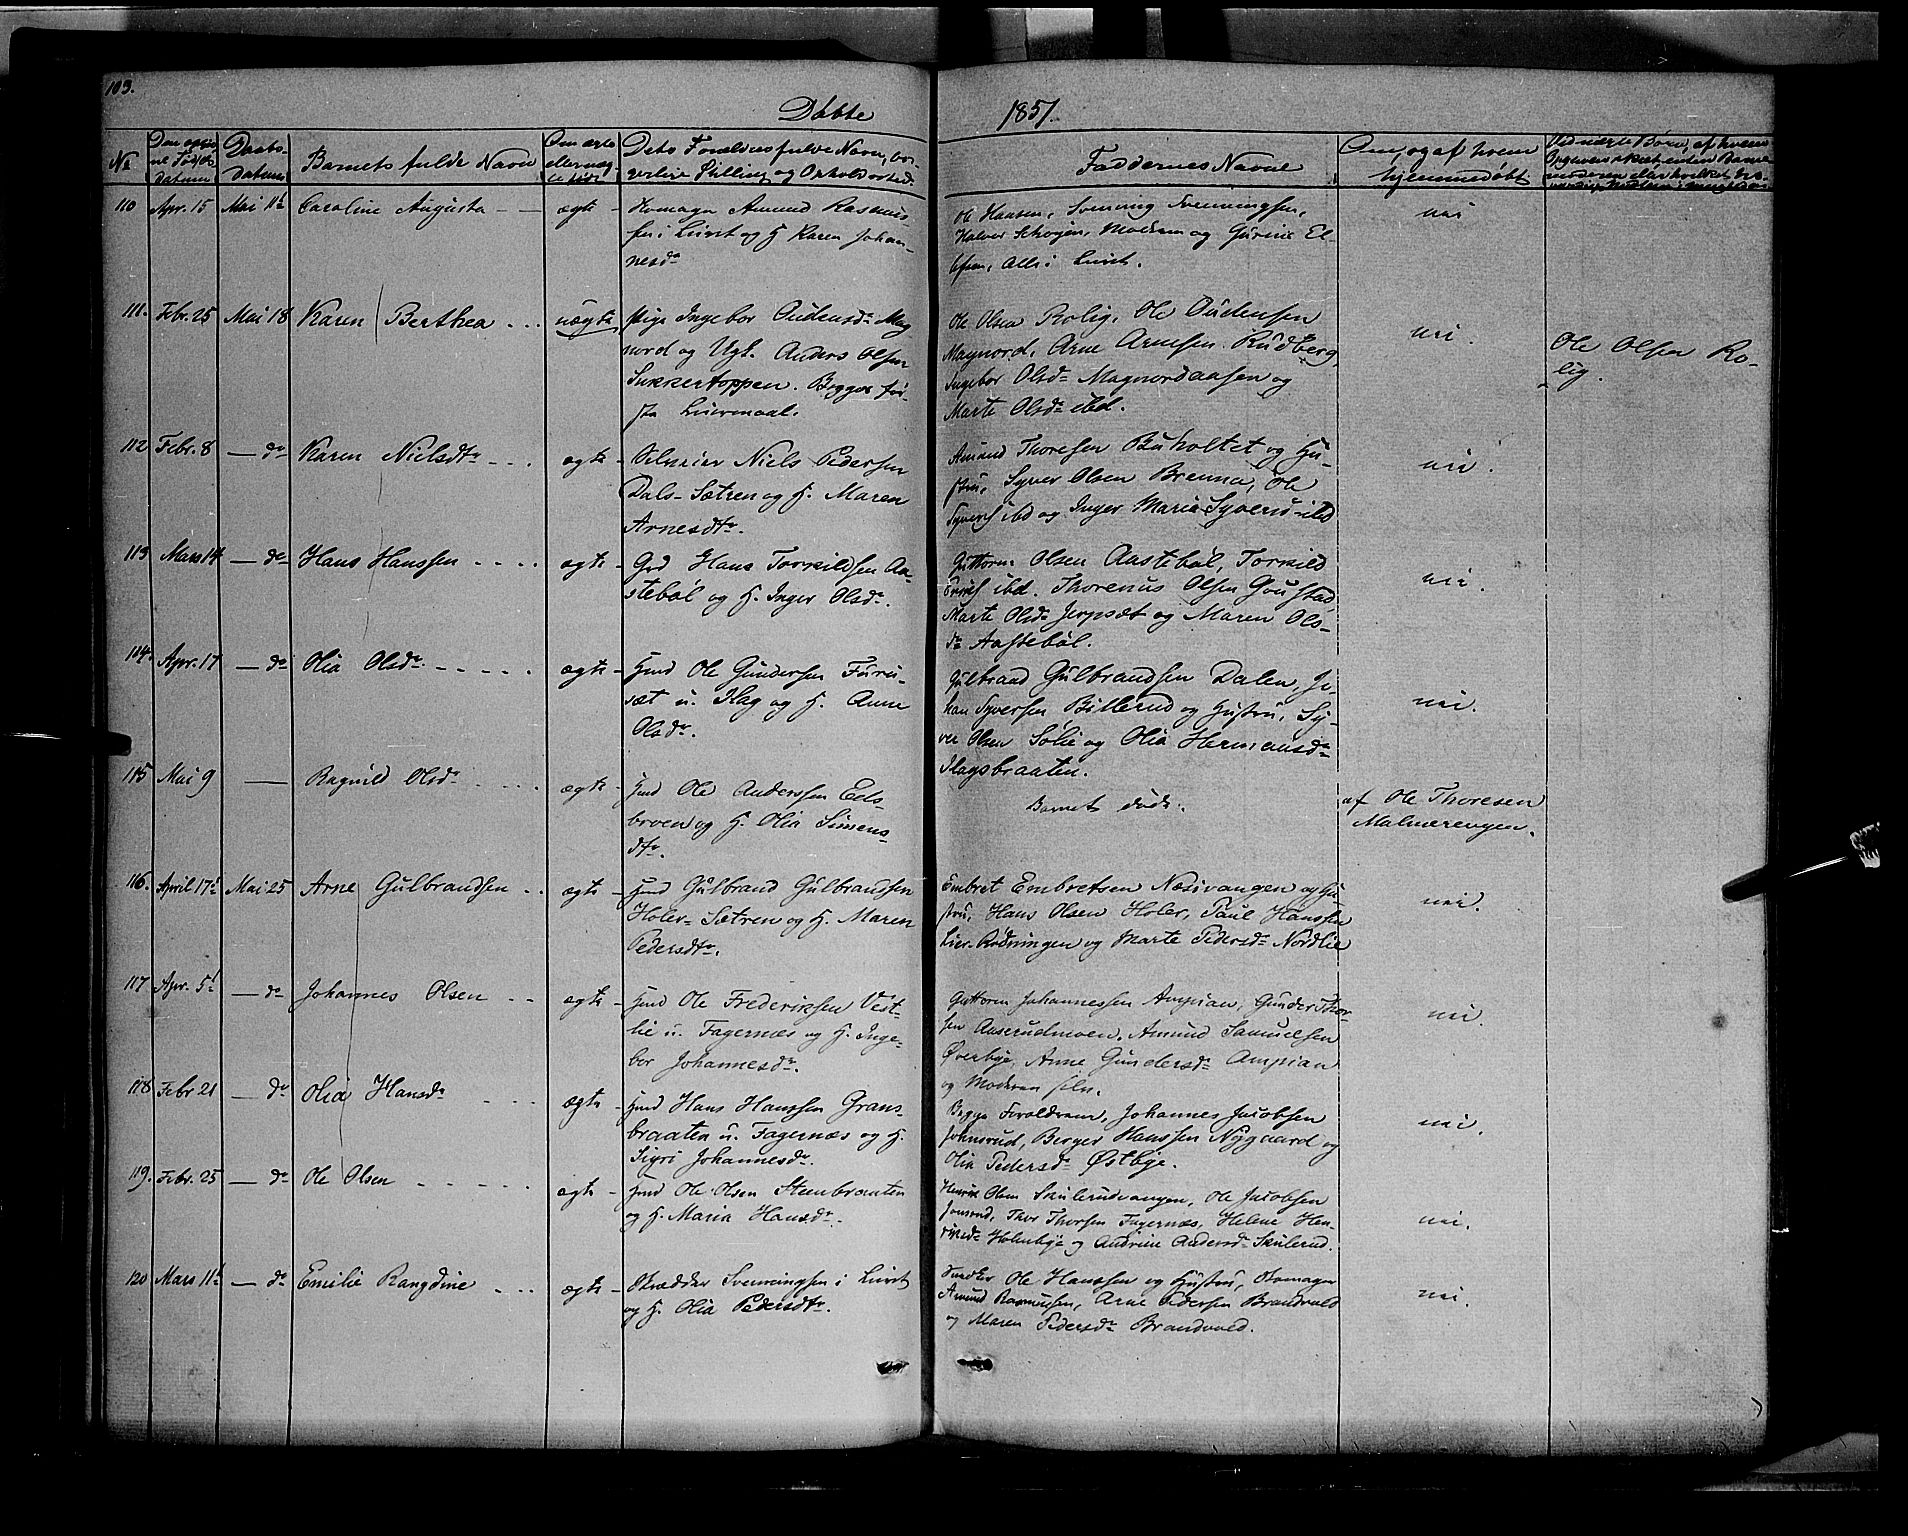 103.
Døbte
1851.
No
Døbs-
datum
Barnets fulde Navn
Faddernes Navne
Om, og af hvem
hjemmedøbt
110 Apr. 15 Mai 11t Caroline Augusta — — ægte Skomager Amund Rasmus-
sen i Liiret og H. Karen Johan-
nesdr
Ole Hansen, Svenning Svenningsen,
Halvor Moderen og Gurine El-
Alle i Liiret.
nei
111. Febr. 25 Mai 18 Karen Berthea . . . uægte Pige Ingebor Audensdr Mag-
nord og Ugk. Anders Olsen
Sukkertoppen. Begges før-
ste Leiermaal.
Ole Olsen Rolig, Ole Oudensen
Magnord, Arne Arnesen Rudberg,
Ingebor Olsdr Magnordaasen og
Marte Olsdr ibd.
nei.
Ole Olsen Ro-
lig.
112 Febr. 8 — do Karen Nielsdtr - . . ægte - Selveier Niels Pedersen
Dals-Sætren og H. Maren
Arnesdtr.
Amund Thoresen Buholtet og Hu-
stru, Syver Olsen Brenna, Ole
Syvers ibd og Inger Maria Syversd ibd
nei.
113 Mars 14 — do Hans Hanssen - . . . ægte - Grd Hans Torkildsen Aa-
stebøl og H. Inger Olsdr.
Guttorm Olsen Aastebøl, Torkild
Erics ibd. Thorenus Olsen Goustad
Marte Olsdr Jerpsæt og Maren Ols-
dr Aastebøl.
nei.
114. Apr. 17 — do Olia Olsdr. - - - - - ægte - Hmd Ole Gundersen Furu-
sæt u. Hag og H. Anne
Olsdr.
Gulbrand Gulbrandsen Dalen, Jo-
han Syversen Billerud og Hustru, Sy-
ver Olsen Solie og Olia Hermansdr
Hagsbraaten.
nei.
115 Mai 9 — Ragnild Olsdr . . . . ægte - Hmd Ole Anderssen Eds-
broen og H. Olia Simens-
dtr.
Barnet døde.
af Ole Thoresen
Malnærengen.
116. April 17t Mai 25 Arne Gulbrandsen . . ægte - Hmd Gulbrand Gulbrandsen
Holer-Sætren og H. Maren
Pedersdtr.
Embret Embretsen Næsivangen og Hu-
stru, Hans Olsen Holer, Paul Hanssen
Lier-Rødningen og Marte Pedersdr Nordlie
nei.
117 Apr. 5t — do Johannes Olsen - - ægte - Hmd Ole Frederiksen Vest-
lie u. Fagernæs og H. Inge-
bor Johannesdr.
Guttorm Johannessen Ampian, Gunder Thor-
sen Aaserudmoen, Amund Samuelsen
Øverbye, Anne Gundersdr Ampian
og Moderen selv.
nei.
118 Febr 21 — do Olia Hansdr - - - ægte - Hmd Hans Hanssen Grans-
braaten u. Fagernæs og H.
Sigri Johannesdr.
Begge Forældrene, Johannes Jacobsen
Johnsrud, Berger Hanssen Nygaard og
Olia Pedersdr Østbye.
nei.
119. Febr. 25 — do Ole Olsen - - - - - ægte - Hmd Ole Olsen Steenbraaten
og H. Maria Hansdr.
Henrik Olsen Skulerudvangen, Ole Jacobsen
Jonsrud, Thor Thorsen Fagernæs, Helene Hen-
riksdr Holmbye og Andrine Andersdr Skulerud.
nei.
120 Mars 11t — do Emilie Rangdine - . . . ægte - Skrædder Svenningsen i Liiret
og H. Olia Pedersdtr.
Snedker Ole Hanssen og Hustru, Skomager
Amund Rasmussen, Arne Pedersen Brandvold
og Maren Pedersdr Brandvold.
nei.